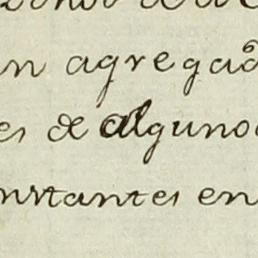 n agregad
es de algunos
nstantes en